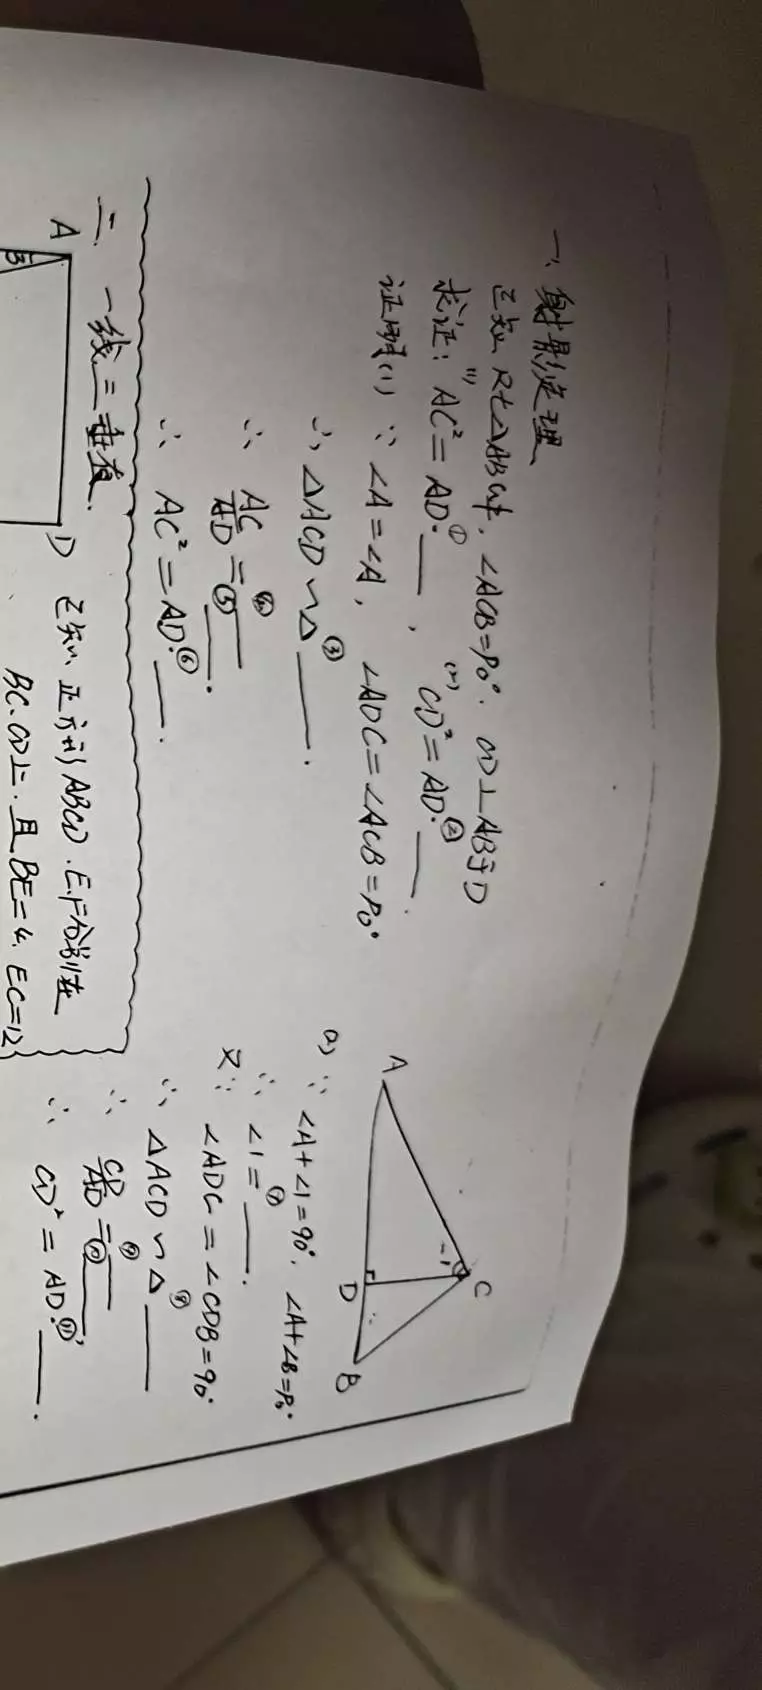 一、射影定理
已知 Rt△ABC中, ∠ACB=90°. CD⊥AB于D
求证: (1) AC²=AD·①___, (2) CD²=AD·②___.
证明(1) ∵ ∠A=∠A, ∠ADC=∠ACB=90°
∴ △ACD∽△③___.
∴ AC/AD=④___/⑤___.
∴ AC²=AD·⑥___.
A
C
1
D
B
(2) ∵ ∠A+∠1=90°, ∠A+∠B=90°
∴ ∠1=⑦___.
又∵ ∠ADC=∠CDB=90°
∴ △ACD∽△⑧___
∴ CD/AD=⑨___/⑩___,
∴ CD²=AD·⑪___.
二. 一线三垂直.
A
D
3
已知, 正方形ABCD. E、F分别在
BC、CD上. 且BE=4. EC=12